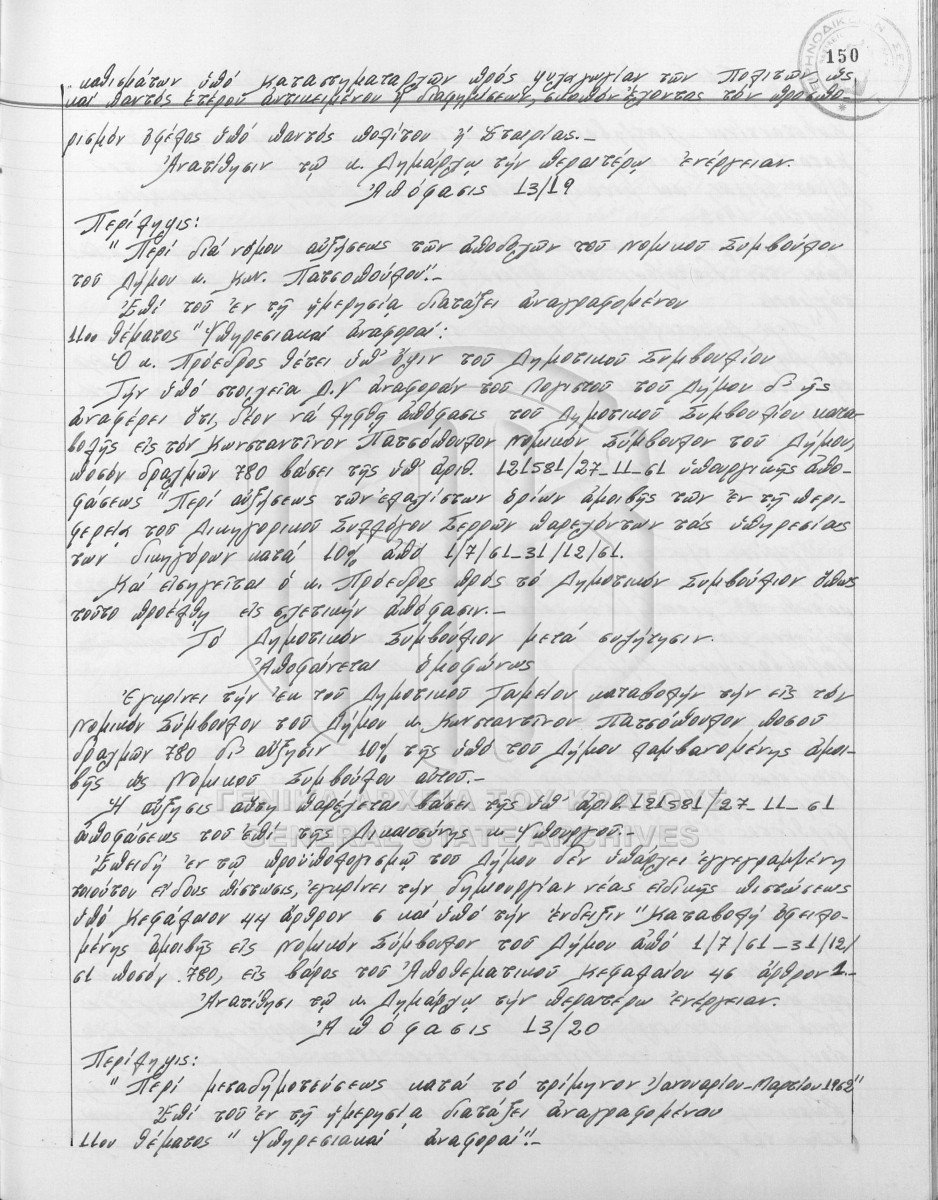 150
καθισμάτων ὑπό καταστηματαρχῶν πρός ψυχαγωγίαν τῶν Πολιτῶν ὡς
καί παντός ἑτέρου ἀντικειμένου ἤ διαφημίσεων, σκοπόν ἔχοντος τόν προσπο-
ρισμόν ὀφέλος ὑπό παντός πολίτου ἤ Ἑταιρίας._
Ἀνατίθησιν τῷ κ. Δημάρχῳ τήν περαιτέρω ἐνέργειαν.
Ἀπόφασις 13/19
Περίληψις:
"Περί διά νόμου αὐξήσεως τῶν ἀποδοχῶν τοῦ Νομικοῦ Συμβούλου
τοῦ Δήμου κ. Κων. Πατσοπούλου"._
Ἐπί τοῦ ἐν τῇ ἡμερησίᾳ διατάξει ἀναγραφομένου
11ου θέματος "Ὑπηρεσιακαί ἀναφοραί:
Ὁ κ. Πρόεδρος θέτει ὑπ' ὄψιν τοῦ Δημοτικοῦ Συμβουλίου
Τήν ὑπό στοιχεῖα Δ.Υ ἀναφοράν τοῦ Λογιστοῦ τοῦ Δήμου δι' ἧς
ἀναφέρει ὅτι, δέον νά ληφθῇ ἀπόφασις τοῦ Δημοτικοῦ Συμβουλίου κατα-
βολῆς εἰς τόν Κωνσταντῖνον Πατσόπουλον Νομικόν Σύμβουλον τοῦ Δήμου,
ποσόν δραχμῶν 780 βάσει τῆς ὑπ' ἀριθ. 121581/27_11_61 ὑπουργικῆς ἀπο-
φάσεως "Περί αὐξήσεως τῶν ἐλαχίστων ὁρίων ἀμοιβῆς τῶν ἐν τῇ περι-
φερείᾳ τοῦ Δικηγορικοῦ Συλλόγου Σερρῶν παρεχόντων τάς ὑπηρεσίας
των δικηγόρων κατά 10% ἀπό 1/7/61_31/12/61.
Καί εἰσηγεῖται ὁ κ. Πρόεδρος πρός τό Δημοτικόν Συμβούλιον ὅπως
τοῦτο προέλθῃ εἰς σχετικήν ἀπόφασιν._
Τό Δημοτικόν Συμβούλιον μετά συζήτησιν.
Ἀποφαίνεται ὁμοφώνως
Ἐγκρίνει τήν ἐκ τοῦ Δημοτικοῦ Ταμείου καταβολήν τήν εἰς τόν
Νομικόν Σύμβουλον τοῦ Δήμου κ. Κωνσταντῖνον Πατσόπουλον ποσοῦ
δραχμῶν 780 δι' αὔξησιν 10% τῆς ὑπό τοῦ Δήμου λαμβανομένης ἀμοι-
βῆς ὡς Νομικοῦ Συμβούλου αὐτοῦ._
Ἡ αὔξησις αὕτη παρέχεται βάσει τῆς ὑπ' ἀριθ. 121581/27_11_61
ἀποφάσεως τοῦ ἐπί τῆς Δικαιοσύνης κ. Ὑπουργοῦ._
ΓΕΝΙΚΑ ΑΡΧΕΙΑ ΤΟΥ ΚΡΑΤΟΥΣ
GENERAL STATE ARCHIVES
Ἐπειδή ἐν τῷ προϋπολογισμῷ τοῦ Δήμου δέν ὑπάρχει ἐγγεγραμμένη
τοιούτου εἴδους πίστωσις, ἐγκρίνει τήν δημιουργίαν νέας εἰδικῆς πιστώσεως
ὑπό Κεφάλαιον 44 ἄρθρον 5 καί ὑπό τήν ἔνδειξιν "Καταβολή ὀφειλο-
μένης ἀμοιβῆς εἰς Νομικόν Σύμβουλον τοῦ Δήμου ἀπό 1/7/61_31/12/
61 ποσόν 780, εἰς βάρος τοῦ Ἀποθεματικοῦ Κεφαλαίου 45 ἄρθρον 1._
Ἀνατίθησι τῷ κ. Δημάρχῳ τήν περαιτέρω ἐνέργειαν.
Ἀπόφασις 13/20
Περίληψις:
"Περί μεταδημοτεύσεως κατά τό τρίμηνον Ἰανουαρίου_Μαρτίου 1962"
Ἐπί τοῦ ἐν τῇ ἡμερησίᾳ διατάξει ἀναγραφομένου
11ου θέματος "Ὑπηρεσιακαί ἀναφοραί"._